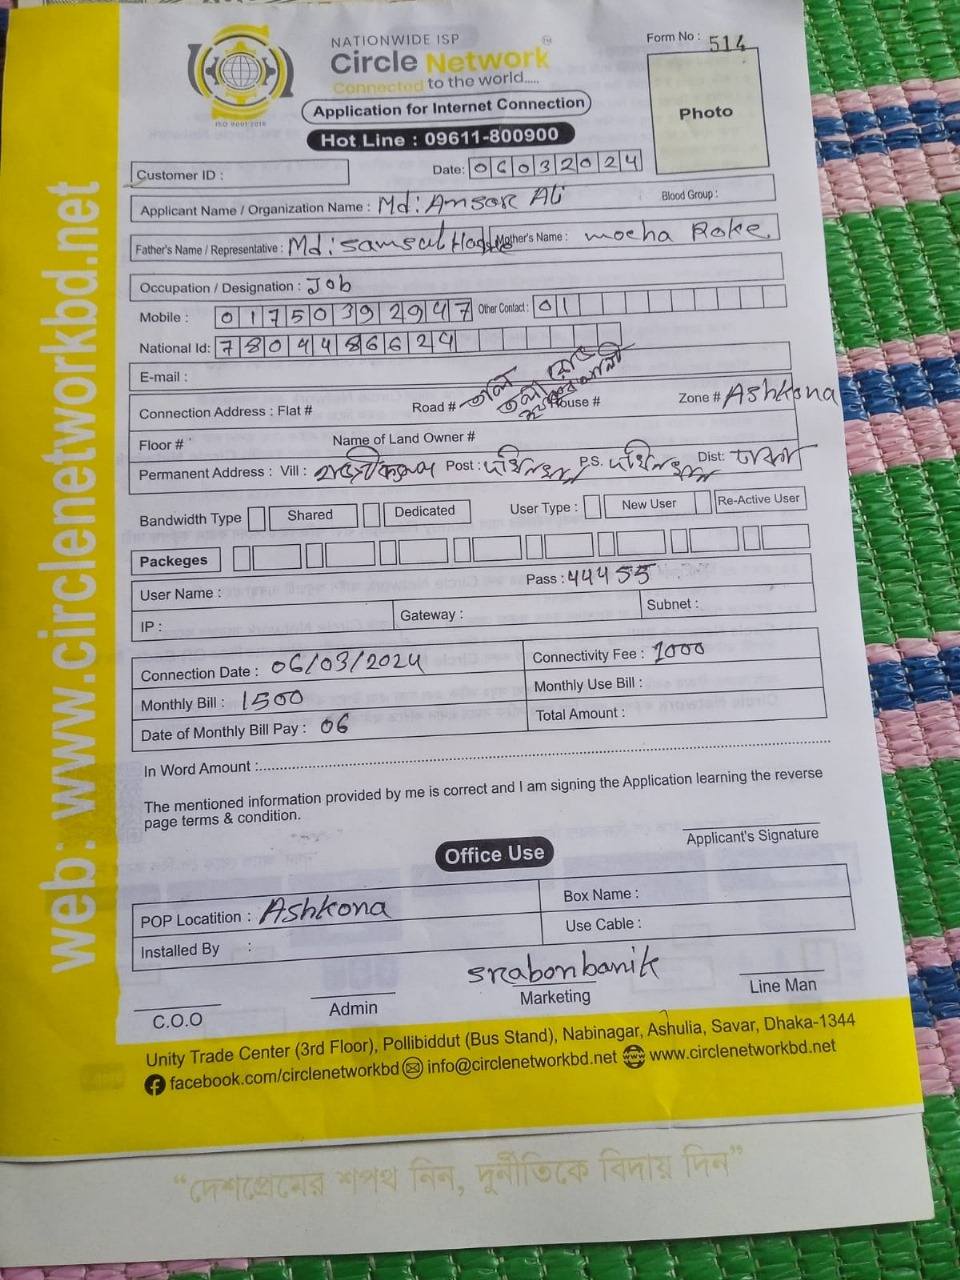 NATIONWIDE ISP
Circle Network
Connected to the world.....
ISO 9001:2015
Form No : 514
Photo
Application for Internet Connection
Hot Line : 09611-800900
Customer ID :
Date: 06032024
Applicant Name / Organization Name : Md: Ansar Ali Blood Group :
Father's Name / Representative : Md: samsul Mother's Name : mocha Roke.
Occupation / Designation : Job
Mobile : 01750392947 Other Contact : 01
National Id: 7804486624
E-mail :
Connection Address : Flat # Road # House # Zone # Ashkona
Floor # Name of Land Owner #
Permanent Address : Vill : Post : P.S. Dist: ঢাকা
Bandwidth Type Shared Dedicated User Type : New User Re-Active User
Packeges
User Name : Pass : 44455
IP : Gateway : Subnet :
Connection Date : 06/03/2024 Connectivity Fee : 1000
Monthly Bill : 1500 Monthly Use Bill :
Date of Monthly Bill Pay : 06 Total Amount :
In Word Amount :
The mentioned information provided by me is correct and I am signing the Application learning the reverse
page terms & condition.
Applicant's Signature
Office Use
POP Locatition : Ashkona Box Name :
Installed By : Use Cable :
srabonbanik
C.O.O Admin Marketing Line Man
Unity Trade Center (3rd Floor), Pollibiddut (Bus Stand), Nabinagar, Ashulia, Savar, Dhaka-1344
facebook.com/circlenetworkbd info@circlenetworkbd.net www.circlenetworkbd.net
web: www.circlenetworkbd.net
“দেশপ্রেমের শপথ নিন, দুর্নীতিকে বিদায় দিন”